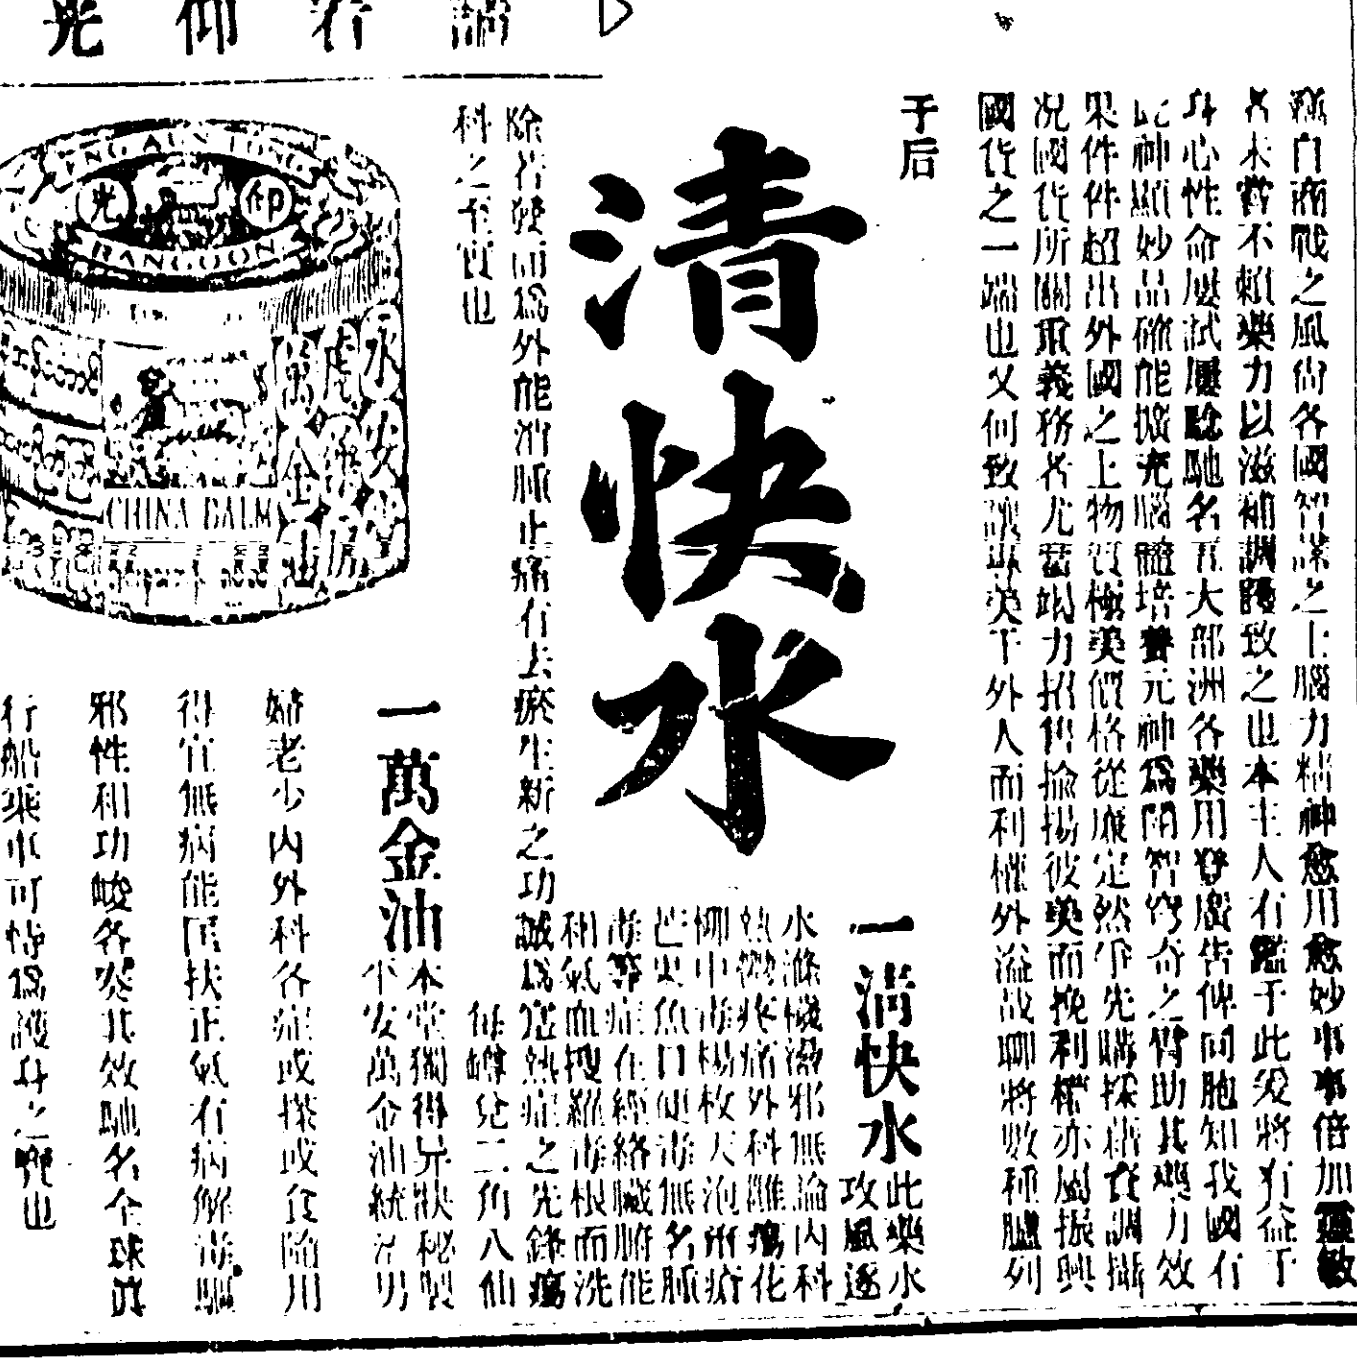 請君仰光
商戰之風尚各國智謀之士腦力精神愈用愈妙事事倍加靈敏
者未嘗不賴藥力以滋補調護致之也本主人有鑑于此爰將有益于
身心性命屢試屢驗馳名五大部洲各藥用登廣告俾同胞知我國有
此神顯妙品確能擴充腦髓培養元神為開智窮奇之臂助其藥力效
果件件超出外國之上物質極美價格從廉定然爭先購採藉資調攝
况國貨所關重義務者尤當竭力招售揄揚彼美而挽利權亦風振興
國貨之一端也又何致讓專美于外人而利權外溢哉聊將數種臚列
于后
清快水
一清快水
此藥水攻風逐
水滌穢瀉邪無論內科
熱 疼痛外科雜瘍化
柳中毒楊枚天泡疳疔
芒果魚口便毒無名腫
毒等症在經絡臟腑能
和氣血搜羅毒根而洗
除若發而為外能消腫止痛有去瘀生新之功誠為寒熱症之先鋒瘍
科之至寶也
每罇兌二角八仙
一萬金油
本堂獨得異狀秘製
平安萬金油統治男
婦老少內外科各症或搽或食隨用
得宜無病能匡扶正氣有病解毒驅
邪性和功峻各奏其效馳名全球真
行船乘車可恃為護身之寶也
ENG AUN TONG
RANGOON
仰光
永安堂
虎
萬金油
CHINA BALM